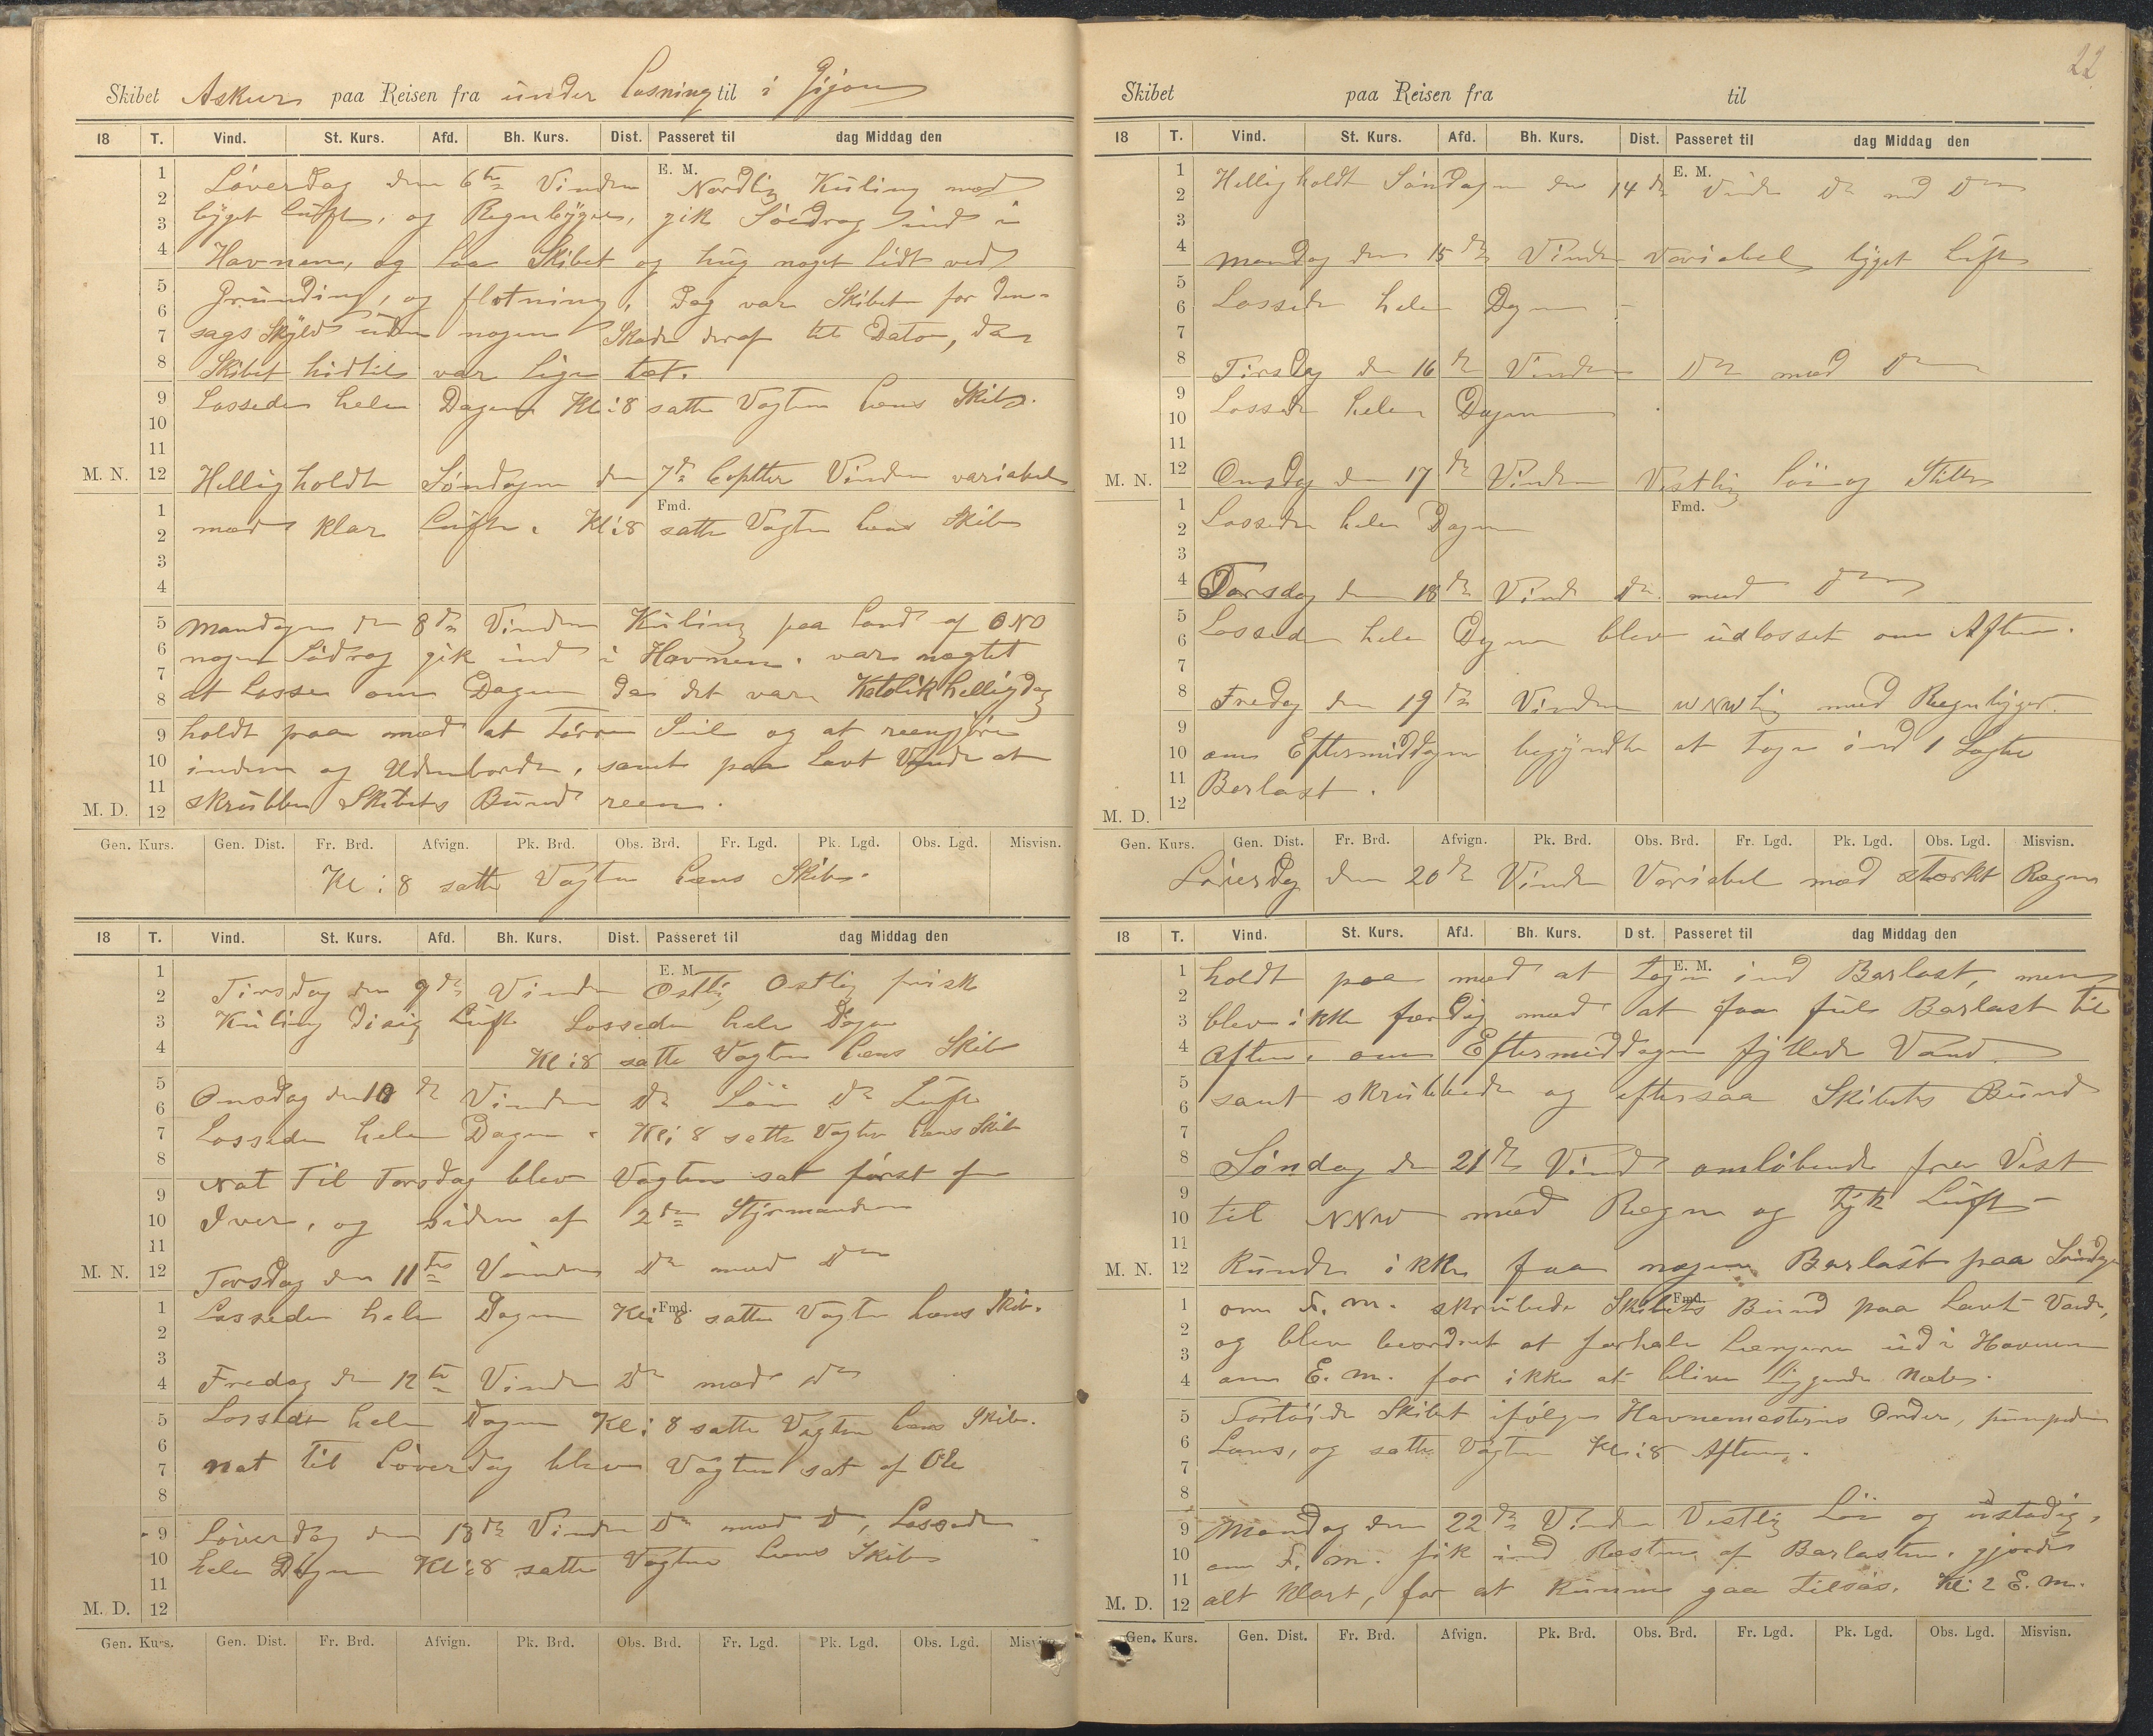 Skibet Askur paa Reisen fra under Losning til i Gijon
18 T. Vind. St. Kurs. Afd. Bh. Kurs. Dist. Passeret til dag Middag den
E. M.
1 2 3 4 5 6 7 8 9 10 11 12
Löverdag den 6te Vinden Nordlig Kuling med
byget Luft, og Regnbyger, gik Södrag ind i
Havnen, og laa Skibet og hug noget lidt ved
Grunding, og flotning, Dog var Skibet for den-
sags Skyld uden nogen Skade deraf til Dato, da
Skibet hidtil var lige tæt.
Lossede hele Dagen Kl: 8 satte Vagten Læns Skib.
M. N.
Helligholdt Söndagen den 7de Septber Vinden variabel
Fmd.
1 2 3 4 5 6 7 8 9 10 11 12
med klar Luft. Kl: 8 satte Vagten Læns Skib
Mandagen den 8de Vinden Kuling paa Land af ONO
nogen Södrag gik ind i Havnen. var nægtet
at Losse om Dagen da det var Katolik helligdag
holdt paa med at Törre Seil og at reengjöre
inden og Udenborde, samt paa Lavt Vande at
skrubbe Skibets Bund reen.
M. D.
Gen. Kurs. Gen. Dist. Fr. Brd. Afvign. Pk. Brd. Obs. Brd. Fr. Lgd. Pk. Lgd. Obs. Lgd. Misvisn.
Kl: 8 satte Vagten Læns Skib.
18 T. Vind. St. Kurs. Afd. Bh. Kurs. Dist. Passeret til dag Middag den
E. M.
1 2 3 4 5 6 7 8 9 10 11 12
Tirsdag den 9de Vinden Ostlig Ostlig frisk
Kuling Disig Luft Lossede hele Dagen
Kl: 8 satte Vagten Læns Skib
Onsdag den 10de Vinden Do Löi Do Luft
Lossede hele Dagen. Kl: 8 satte Vagten Læns Skib
Nat Til Torsdag blev Vagten sat först af
Iver, og siden af 2den Styrmanden
M. N.
Torsdag den 11te Vinden Do med Do
Fmd.
1 2 3 4 5 6 7 8 9 10 11 12
Lossede hele Dagen Kl: 8 satte Vagten Læns Skib.
Fredag den 12te Vinden Do med Do
Lossede hele Dagen Kl: 8 satte Vagten Læns Skib.
nat til Löverdag blev Vagten sat af Ole
Löverdag den 13de Vinden Do med D, Lossede
hele Dagen Kl: 8 satte Vagten Læns Skib
M. D.
Gen. Kurs. Gen. Dist. Fr. Brd. Afvign. Pk. Brd. Obs. Brd. Fr. Lgd. Pk. Lgd. Obs. Lgd. Misvisn.
22
Skibet paa Reisen fra til
18 T. Vind. St. Kurs. Afd. Bh. Kurs. Dist. Passeret til dag Middag den
E. M.
1 2 3 4 5 6 7 8 9 10 11 12
Helligholdt Söndagen den 14de Vinden Do med Do
Mandag den 15de Vinden Variabel byget Luft
Lossede hele Dagen
Tirsdag den 16de Vinden Do med Do
Lossede hele Dagen
M. N.
Onsdag den 17de Vinden Vestlig Löi og Stille
Fmd.
1 2 3 4 5 6 7 8 9 10 11 12
Lossede hele Dagen
Torsdag den 18de Vind Do med Do
Lossede hele Dagen blev udlosset om Aften.
Fredag den 19de Vinden WNWlig med Regnbyger.
om Eftermiddagen begyndte at Tage ind 1 Lægte
Barlast.
M. D.
Gen. Kurs. Gen. Dist. Fr. Brd. Afvign. Pk. Brd. Obs. Brd. Fr. Lgd. Pk. Lgd. Obs. Lgd. Misvisn.
Löverdag den 20de Vinden Variabel med stærkt Regn
18 T. Vind. St. Kurs. Afd. Bh. Kurs. Dist. Passeret til dag Middag den
E. M.
1 2 3 4 5 6 7 8 9 10 11 12
holdt paa med at Tage ind Barlast, men
blev ikke færdig med at faa ful Barlast til
Aften. om Eftermiddagen fyllede Vand
samt skrubbede og eftersaa Skibets Bund
Söndag den 21de Vind omlöbende fra Vest
til NNW med Regn og tyk Luft
M. N.
Kunde ikke faa nogen Barlast paa Söndagen
Fmd.
1 2 3 4 5 6 7 8 9 10 11 12
om F. M. skrubede Skibets Bund paa Lavt Vande,
og blev beordret at forhale Længere ud i Havnen
om E. M. for ikke at blive liggende
Fortöiede Skibet ifölge Havnemesterens Order, pumpede
Læns, og satte Vagten Kl: 8 Aften.
Mandag den 22de Vinden Vestlig Löi og ustadig,
om F. M. fik ind Resten af Barlasten. gjorde
alt klart, for at kunne gaa tilsös. Kl: 2 E. M.
M. D.
Gen. Kurs. Gen. Dist. Fr. Brd. Afvign. Pk. Brd. Obs. Brd. Fr. Lgd. Pk. Lgd. Obs. Lgd. Misvisn.